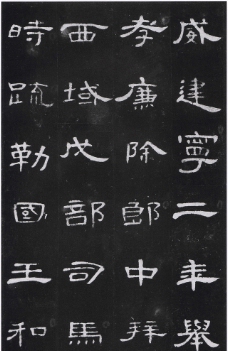 威建寧二年舉
孝廉除郎中拜
西域戊部司馬
時疏勒國王和